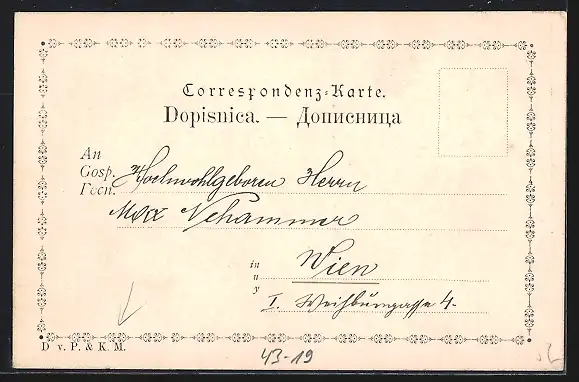 Correspondenz-Karte.
Dopisnica. — Дописница
An
Gosp. Hochwohlgeboren Herrn
Госп.
Max Nehammer
in Wien
u
у
I. Weihburggasse 4.
D v. P. & K. M.
43-19